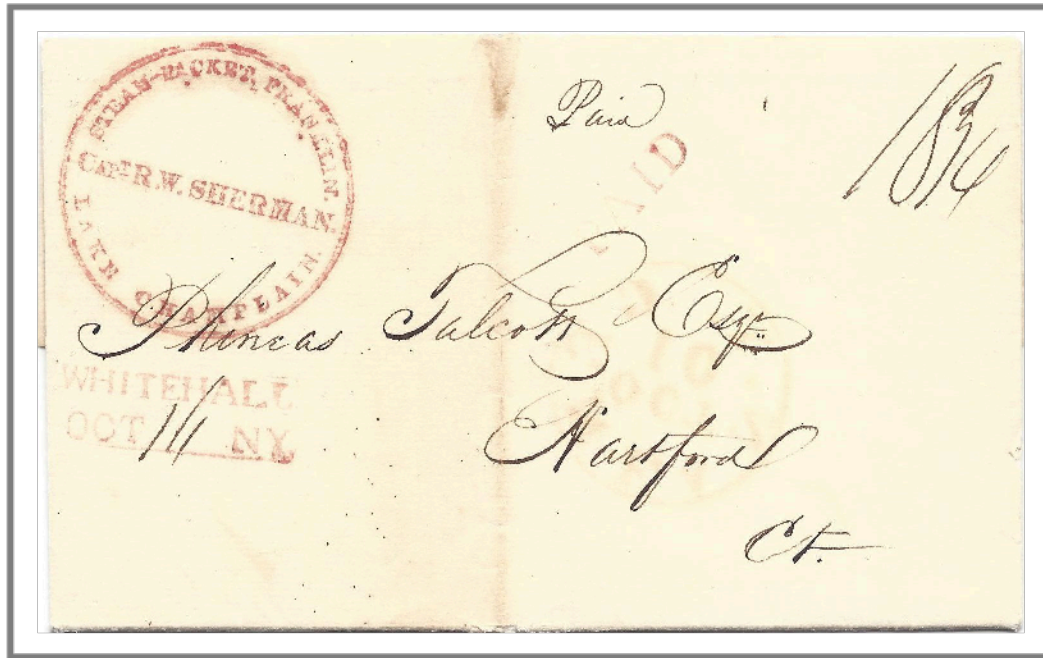 STEAM-PACKET, FRANKLIN.
CAPT. R.W. SHERMAN.
LAKE CHAMPLAIN.
Paid
PAID
18¾
Phineas Talcott Esqr.
WHITEHALL
OCT 14 NY
Hartford
Ct.